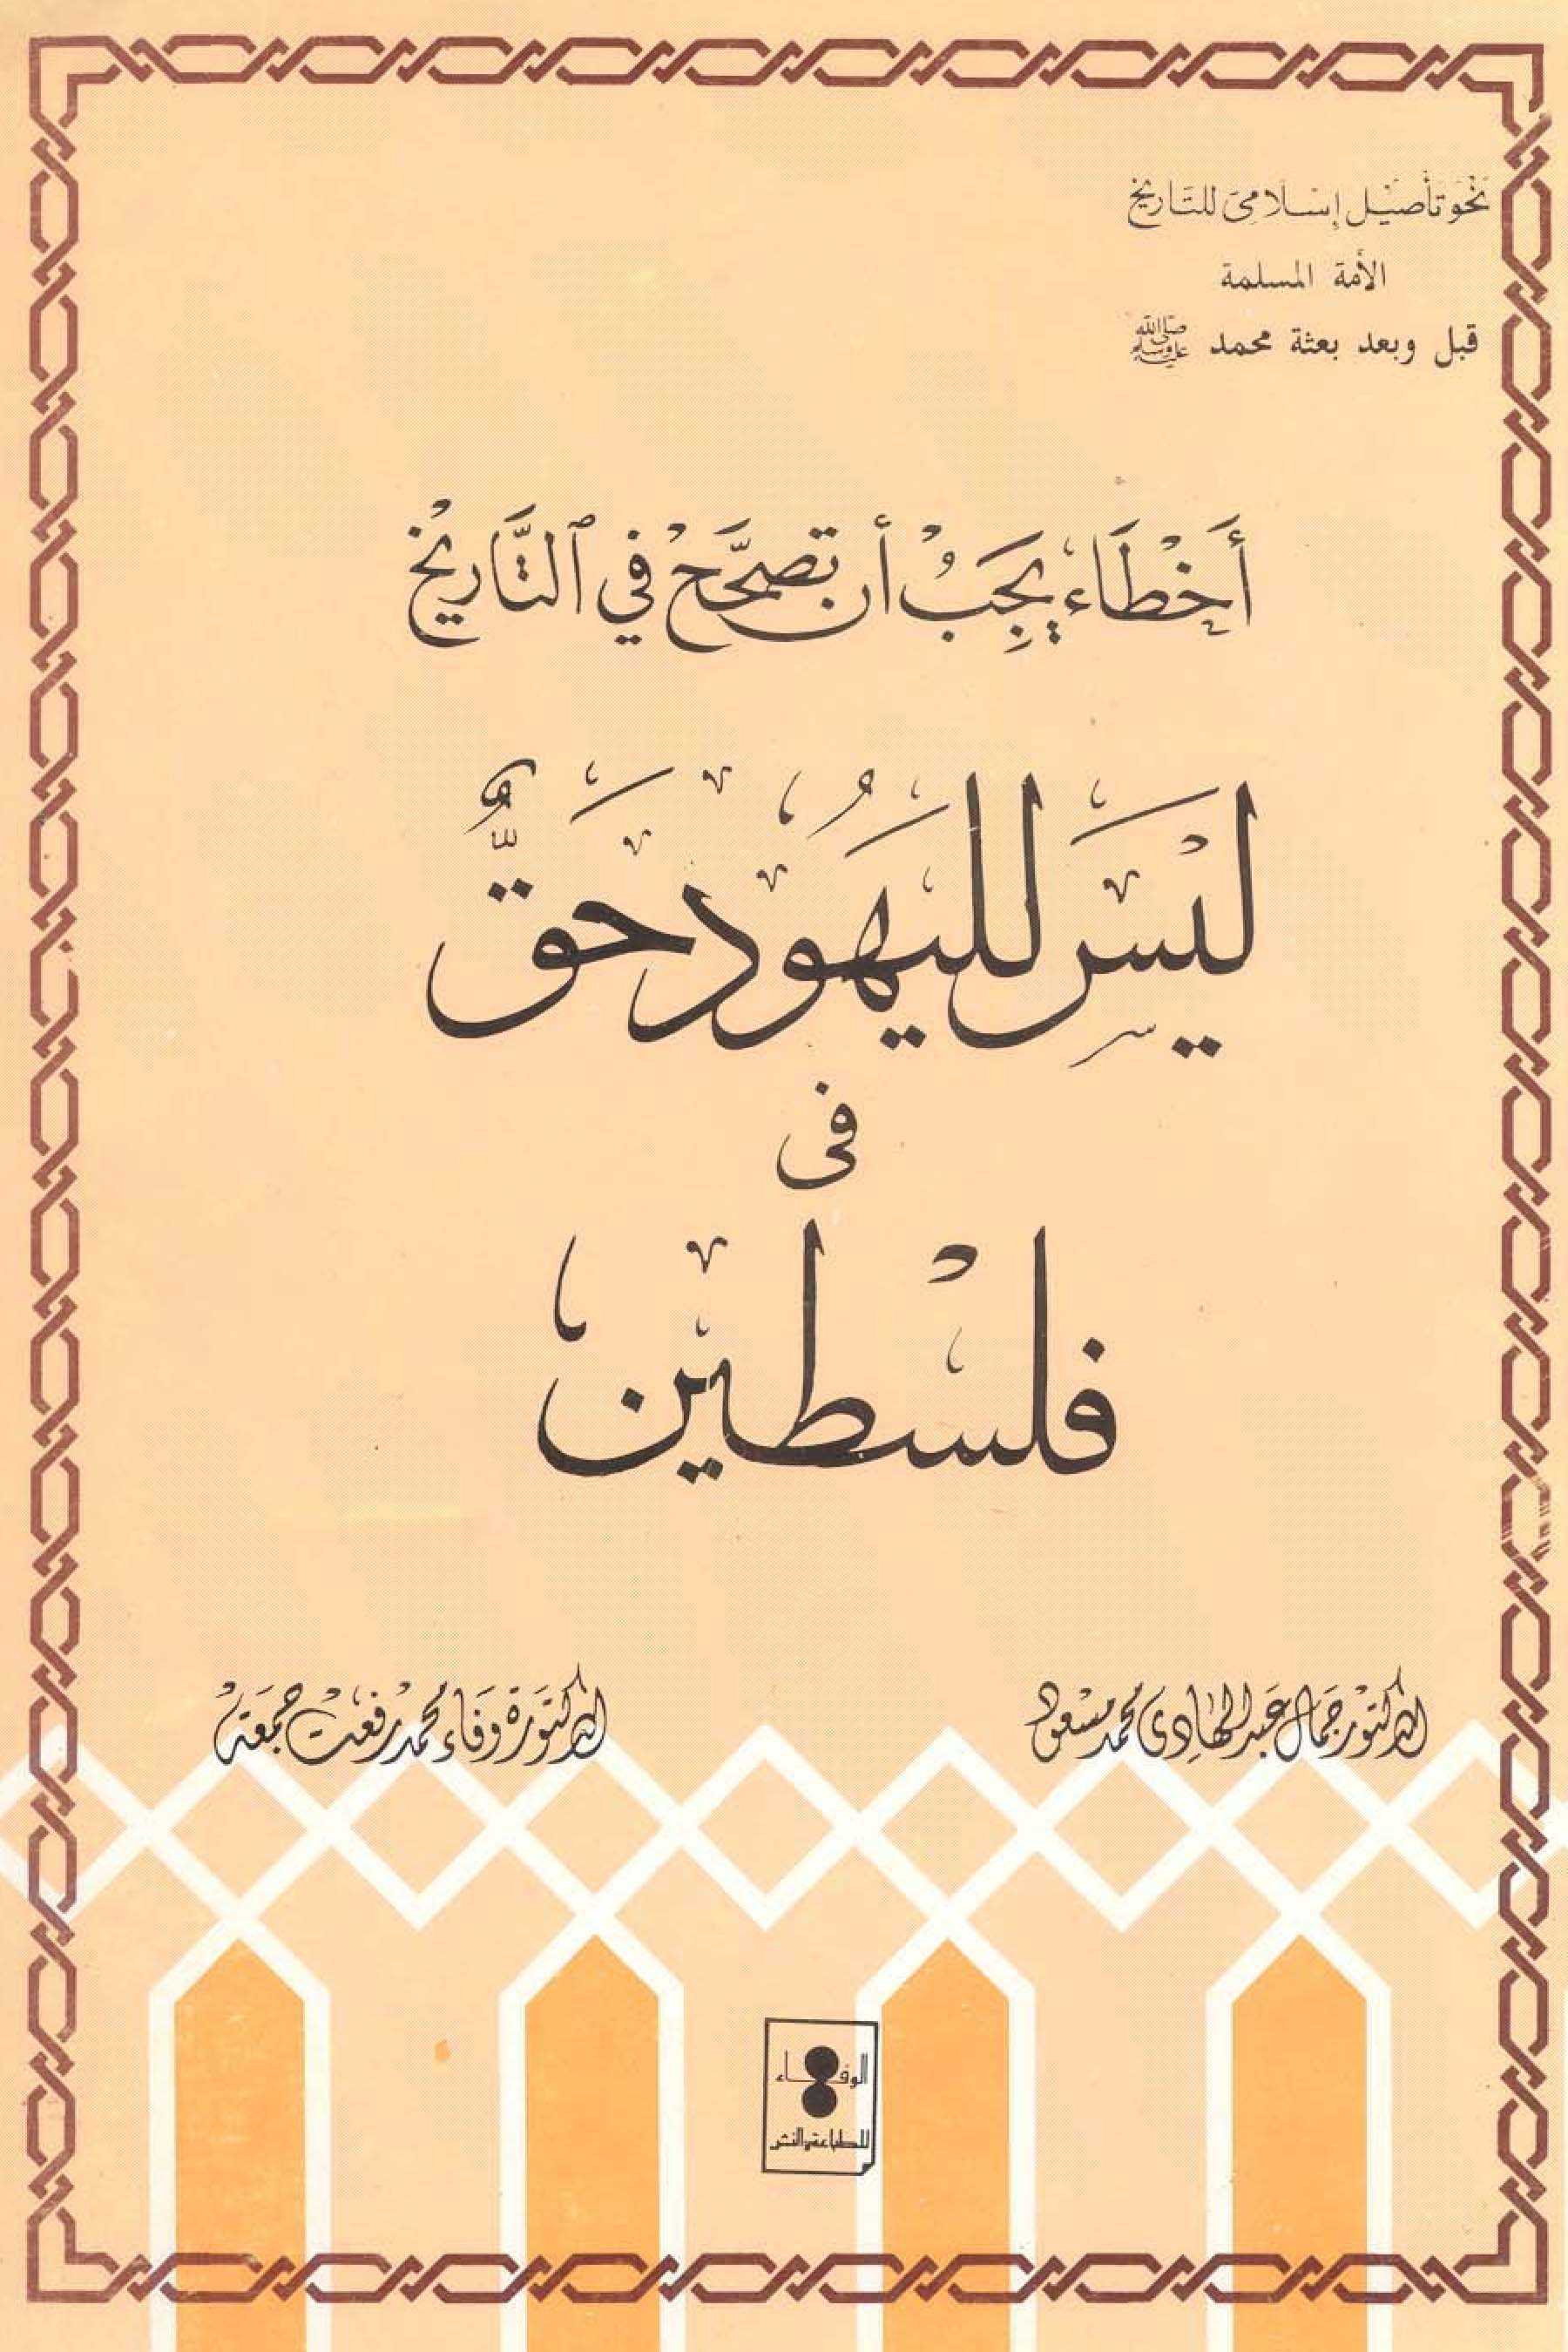 نحو تأصيل إسلامى للتاريخ
الأمة المسلمة
قبل وبعد بعثة محمد ﷺ
أَخْطَاء يَجِبُ أن تصحَّحْ في ٱلتَّاريخْ
ليْسَ لليَهُود حَقٌّ
فى
فلسْطين
الدكتور جمال عبد الهادى محمد مسعود
الدكتورة وفاء محمد رفعت جمعة
الوفاء
للطباعة والنشر